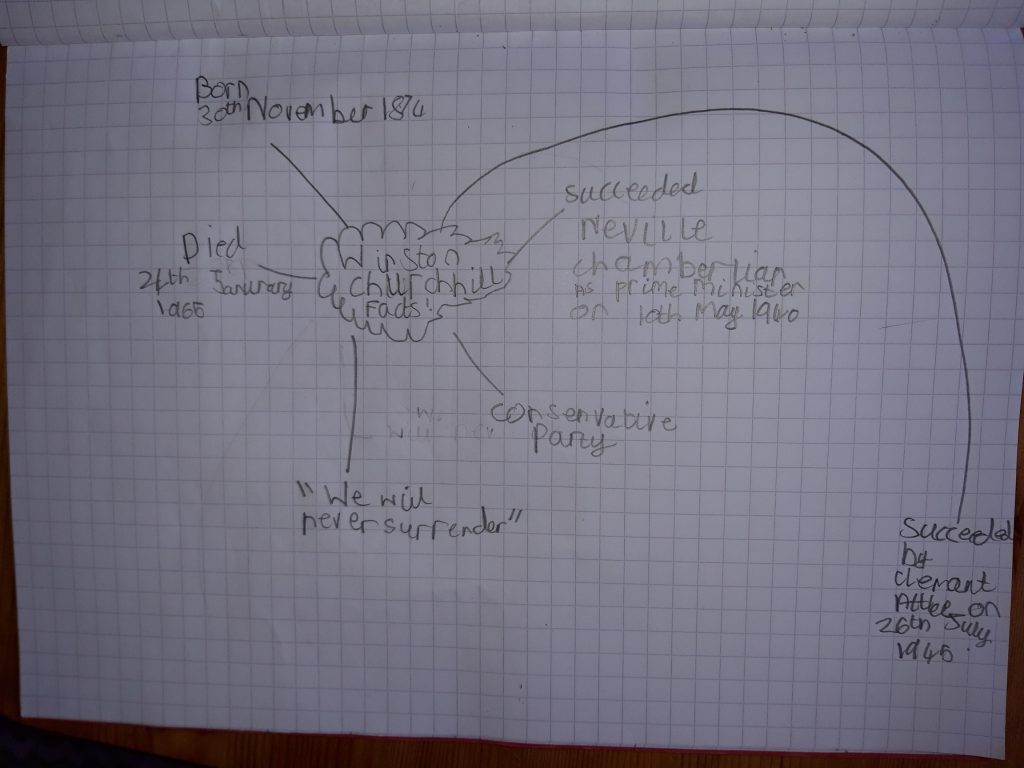 Born
30th November 1874
Winston
Churchhill
Facts!
Died
24th Janurary
1965
succeeded
Neville
chamberlian
As prime minister
on 10th May 1940
conservative
Party
"We will
never surrender"
Succeeded
by
Clemant
Attlee on
26th July
1945